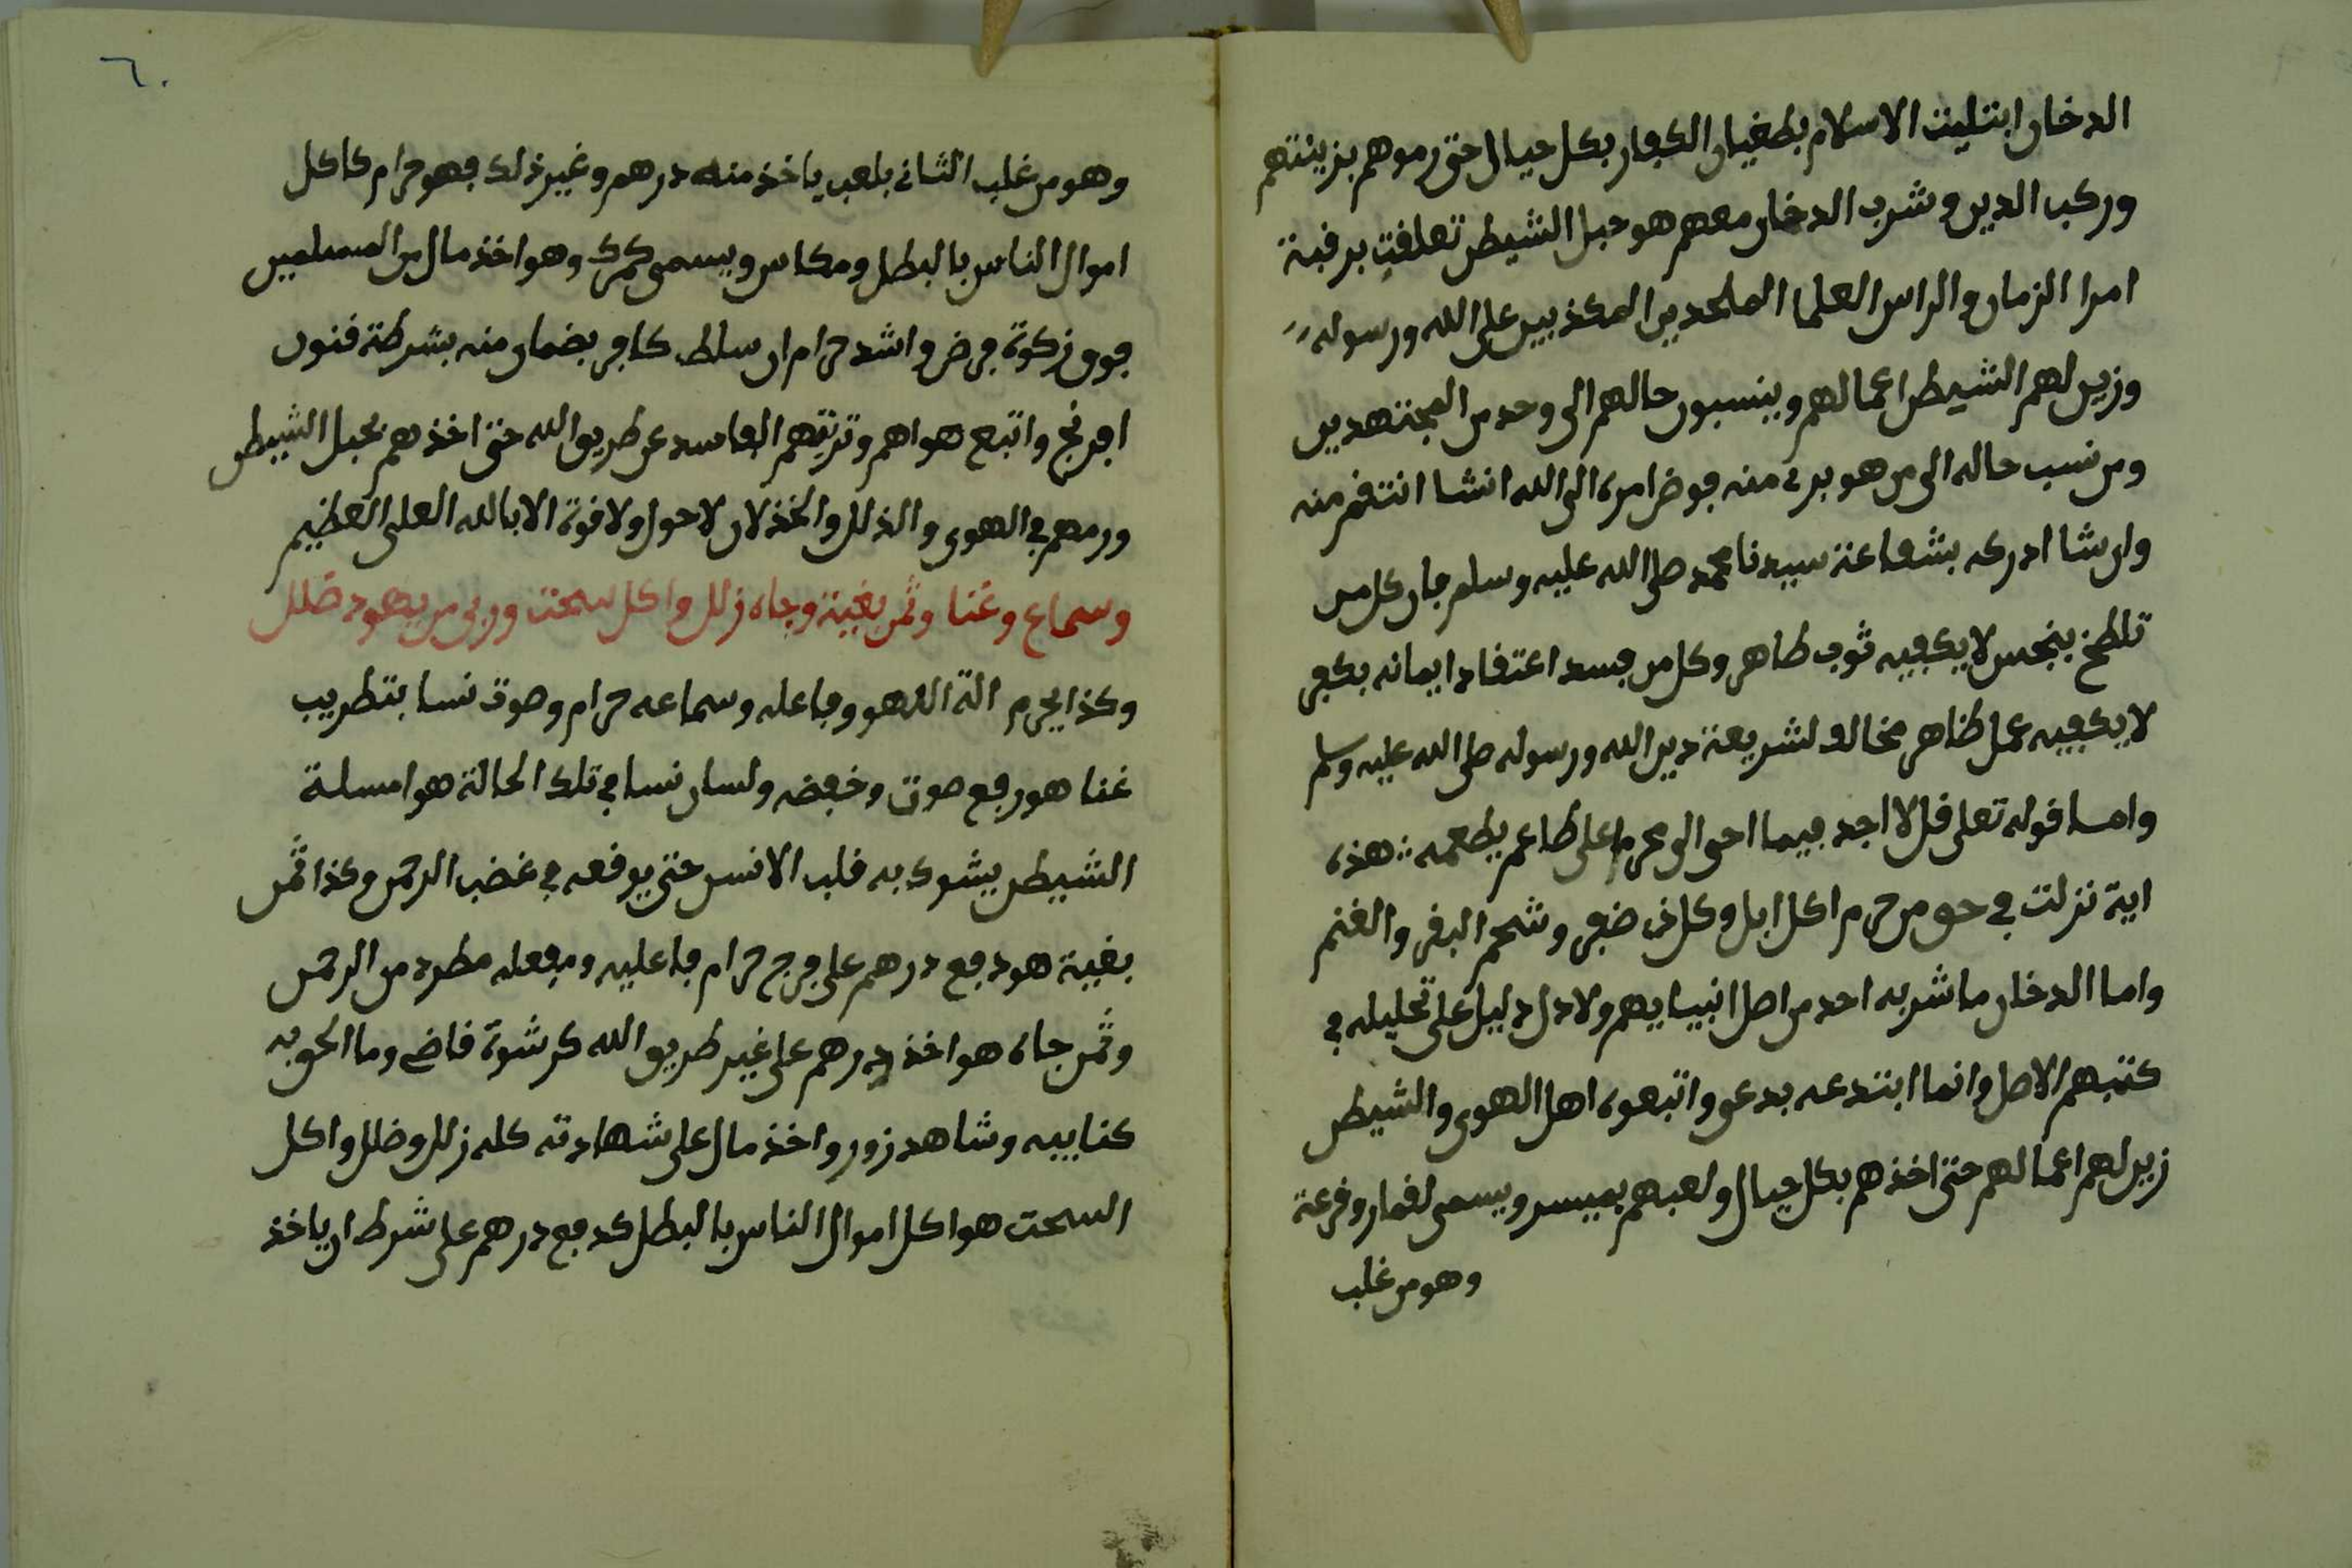 الدخان ابتليت الاسلام بطغيان الكفار بكل حيال حتى رموهم بزينتهم
وركب الدين وشرب الدخان معهم هو حبل الشيطن تعلقت برقبة
امرا الزمان والراس العلما الملحدين المكذبين على الله ورسوله
وزين لهم الشيطن اعمالهم وينسبون حالهم الى وحد من المجتهدين
ومن نسب حاله الى من هو برئ منه فوض امره الى الله انشا انتقم منه
وان شا ادركه بشفاعة سيدنا محمد صلى الله عليه وسلم فان كل من
تلطخ بنجس لا يكفيه ثوب طاهر وكل من فسد اعتقاد ايمانه بكفر
لا يكفيه عمل ظاهر مخالف لشريعة دين الله ورسوله صلى الله عليه وسلم
وامـا قوله تعلى قل لا اجد فيما احى الى محرما على طاعم يطعمه ∴ هذه
اية نزلت في حق من حرم اكل ابل وكل ذى ضفر وشحم البقر والغنم
واما الدخان ما شربه احد من اصل انبيايهم ولا دل دليل على تحليله في
كتبهم الاصل وانما ابتدعه بدعى واتبعوه اهل الهوى والشيطن
زين لهم اعمالهم حتى اخذهم بكل حيال ولعبهم بميسر ويسمى لقمار وقرعة
وهو من غلب
٦٠
وهو من غلب الثانى بلعب ياخذ منه درهم وغير ذلك فهو حرام كاكل
اموال الناس بالبطل ومكاس ويسمى كمرك وهو اخذ مال من المسلمين
فوق زكوة فرض واشد حرام ان سلط كافر بضمان منه بشرطة قنون
افرنج واتبع هواهم وترتيبهم الفاسد عن طريق الله حتى اخذهم بحبل الشيطن
ورمهم في الهوى والذلل والخذلان لا حول ولا قوة الا بالله العلى العظيم
وسماع وغنا وثمن بغية وجاه زلل واكل سحت وربى من يهود ضلل
وكذا يحرم الة اللهو وفاعله وسماعه حرام وصوت نسا بتطريب
غنا هو رفع صوت وخفضه ولسان نسا في تلك الحالة هو امسلة
الشيطن يشوك به قلب الانس حتى يوقعه في غضب الرحمن وكذا ثمن
بغية هو دفع درهم على فرج حرام فاعليه ومفعله مطرد من الرحمن
وثمن جاه هو اخذ درهم على غير طريق الله كرشوة قاضى وما الحق به
كنايبه وشاهد زور واخذ مال على شهادته كله زلل وضلل واكل
السحت هو اكل اموال الناس بالبطل كدفع درهم على شرط ان ياخذ